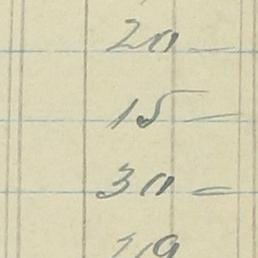 20 —
15 —
30 —